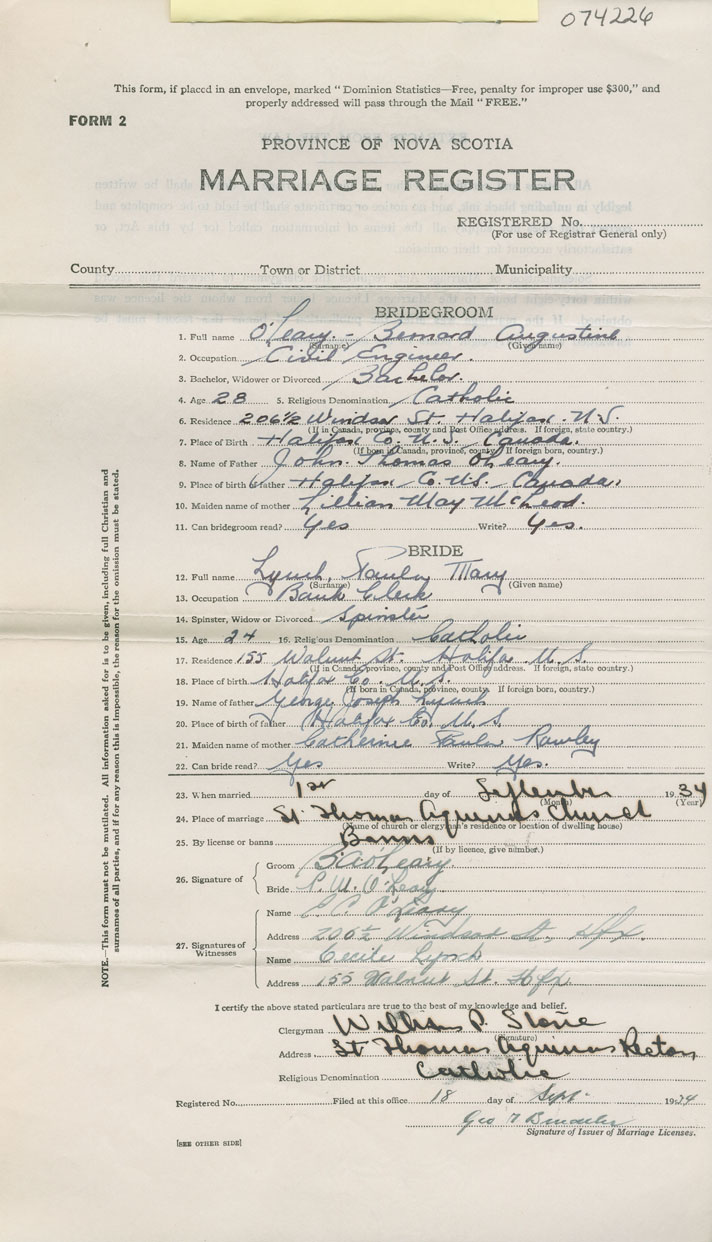 074226
This form, if placed in an envelope, marked "Dominion Statistics—Free, penalty for improper use $300," and
properly addressed will pass through the Mail "FREE."
FORM 2
PROVINCE OF NOVA SCOTIA
MARRIAGE REGISTER
REGISTERED No.
(For use of Registrar General only)
County Town or District Municipality
BRIDEGROOM
1. Full name O'Leary. - Bernard Augustine
(Surname) (Given name)
2. Occupation Civil Engineer.
3. Bachelor, Widower or Divorced Bachelor.
4. Age 28 5. Religious Denomination Catholic
6. Residence 206½ Windsor St. Halifax. N.S.
(If in Canada, province, county and Post Office address. If foreign, state country.)
7. Place of Birth Halifax Co. N.S. Canada.
(If born in Canada, province, county. If foreign born, country.)
8. Name of Father John. Thomas O'Leary.
9. Place of birth father Halifax Co. N.S. Canada.
10. Maiden name of mother Lillian May McLeod.
11. Can bridegroom read? Yes Write? Yes.
BRIDE
12. Full name Lynch, Paula Mary
(Surname) (Given name)
13. Occupation Bank Clerk
14. Spinster, Widow or Divorced Spinster
15. Age 24 16. Religious Denomination Catholic
17. Residence 155 Walnut St. Halifax N.S.
(If in Canada, province, county and Post Office address. If foreign, state country.)
18. Place of birth Halifax Co. N.S.
(If born in Canada, province, county. If foreign born, country.)
19. Name of father George Joseph Lynch
20. Place of birth of father Halifax Co. N.S.
21. Maiden name of mother Catherine Paula Rawley
22. Can bride read? Yes Write? Yes.
23. When married 1st day of September 1934
(Month) (Year)
24. Place of marriage St. Thomas Aquinas Church
(Name of church or clergyman's residence or location of dwelling house)
25. By license or banns Banns
(If by licence, give number.)
26. Signature of
Groom B. A. O'Leary.
Bride P. M. O'Leary
27. Signatures of Witnesses
Name O'Leary
Address 206½ Windsor St. Hfx.
Name Cecile Lynch
Address 155 Walnut St. Hfx.
I certify the above stated particulars are true to the best of my knowledge and belief.
Clergyman William P. Stone
(Signature)
Address St Thomas Aquinas Rectory
Religious Denomination Catholic
Registered No. Filed at this office 18 day of Sept. 1934
Geo
Signature of Issuer of Marriage Licenses.
[SEE OTHER SIDE]
NOTE.—This form must not be mutilated. All information asked for is to be given, including full Christian and
surnames of all parties, and if for any reason this is impossible, the reason for the omission must be stated.